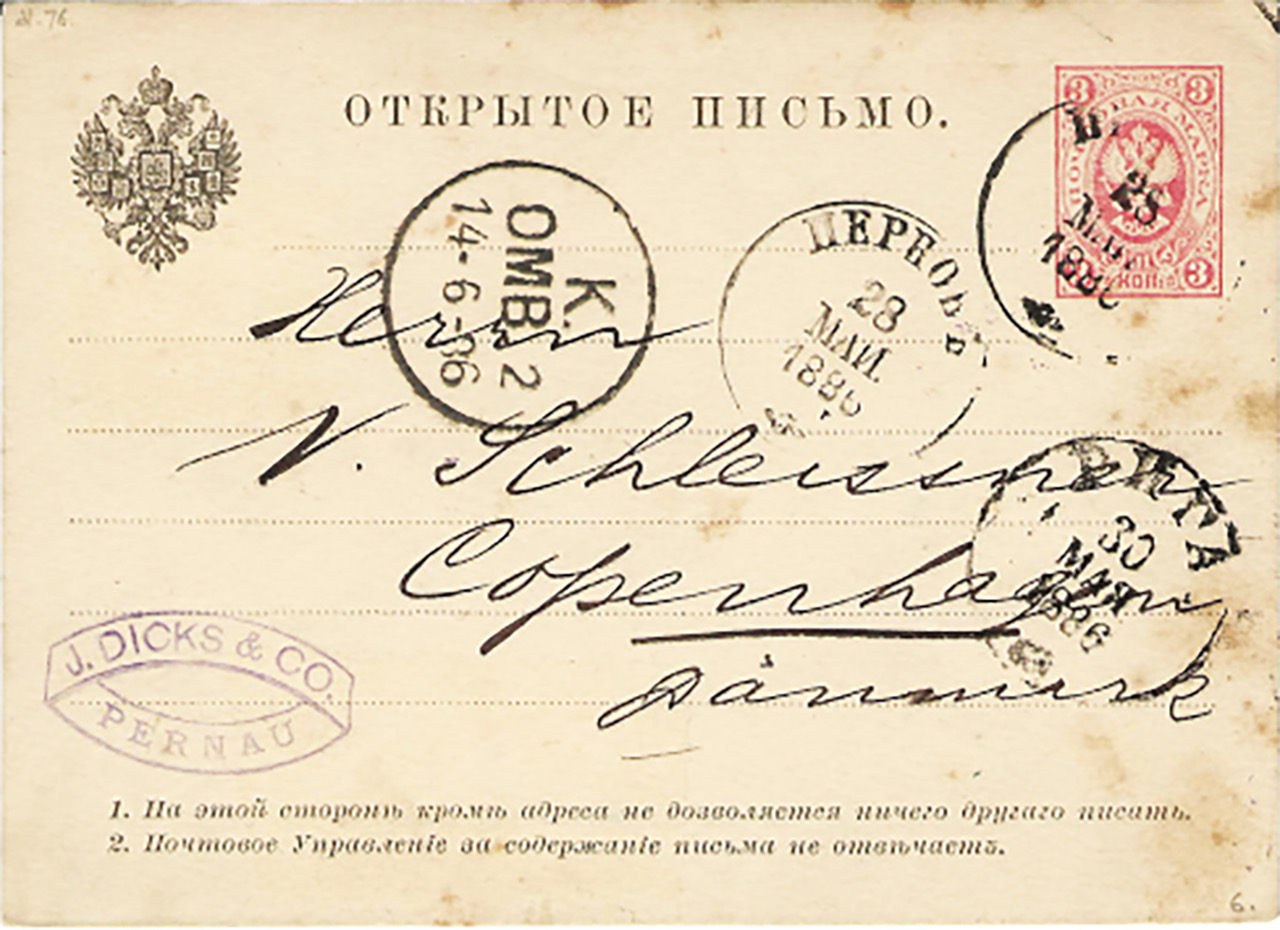 И. 76.
ОТКРЫТОЕ ПИСЬМО.
3 3
ПОЧТОВАЯ МАРКА
КОПѢ 3
28
МАЯ
1886
ПЕРНОВЪ
28
МАЯ.
1886
K.
OMB. 2
14-6-86
Herrn
N. Schleissner
Copenhagen
Dänmark
РИГА
30
МАЯ
1886
J. DICKS & CO.
PERNAU
1. На этой сторонѣ кромѣ адреса не дозволяется ничего другаго писать.
2. Почтовое Управленіе за содержаніе письма не отвѣчаетъ.
6.